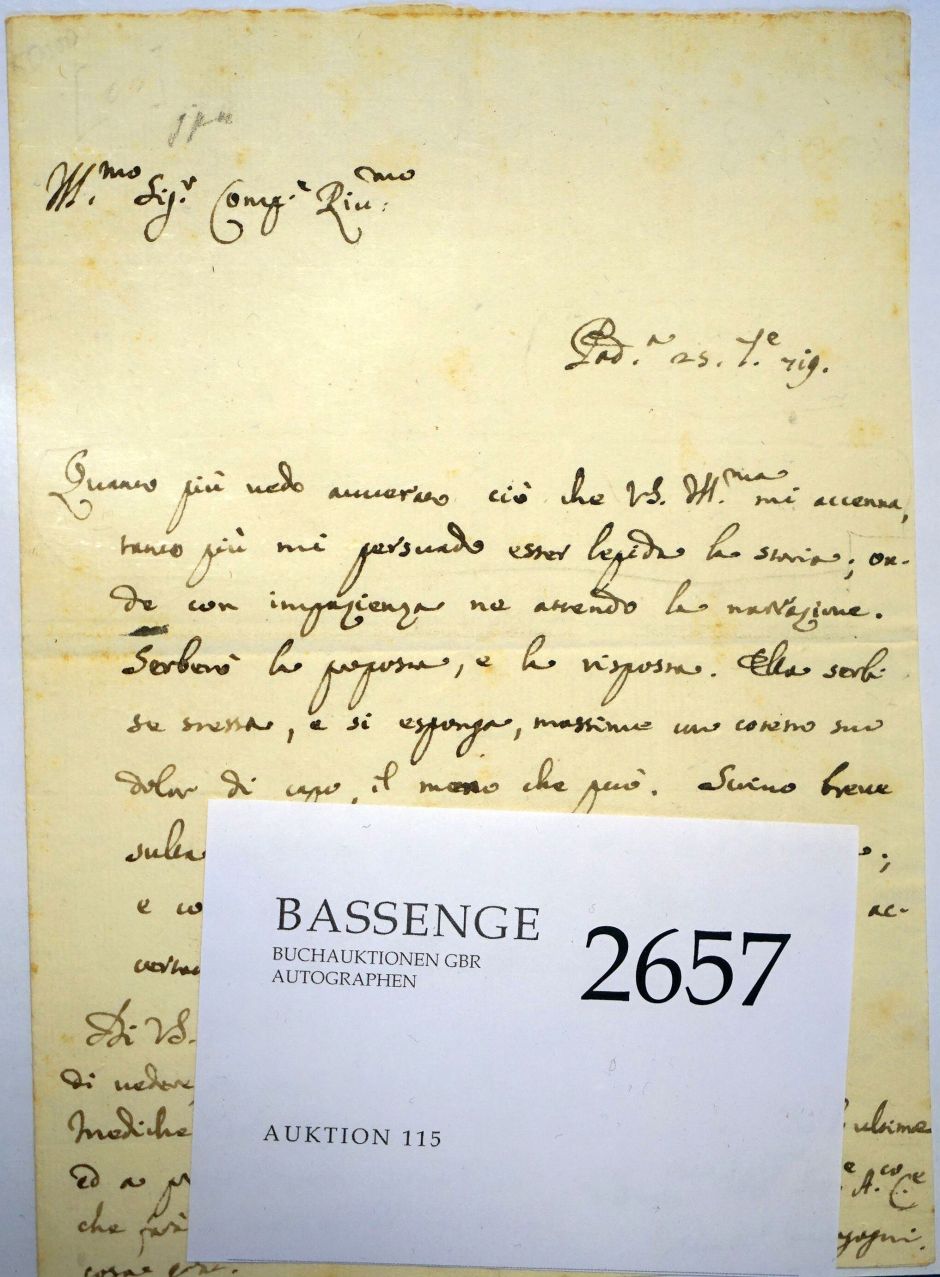 Ill.mo Sig.r Comp.e Riv.mo
Pad.a 25. 7.e 719.
Quanto più vedo avverato ciò che VS. Ill.ma mi accenna,
tanto più mi persuado esser lepida la storia; on-
de con impazienza ne attendo la narrazione.
Serberò la proposta, e la risposta. Ella serbi
se stessa, e si esponga, massime con cotesto suo
dolor di capo, il meno che può. Scrivo breve
sulla
e co ac-
certar
BASSENGE
BUCHAUKTIONEN GBR
AUTOGRAPHEN
2657
AUKTION 115
Di VS.
di vedere
Mediche ultime
ed a
che
cosa